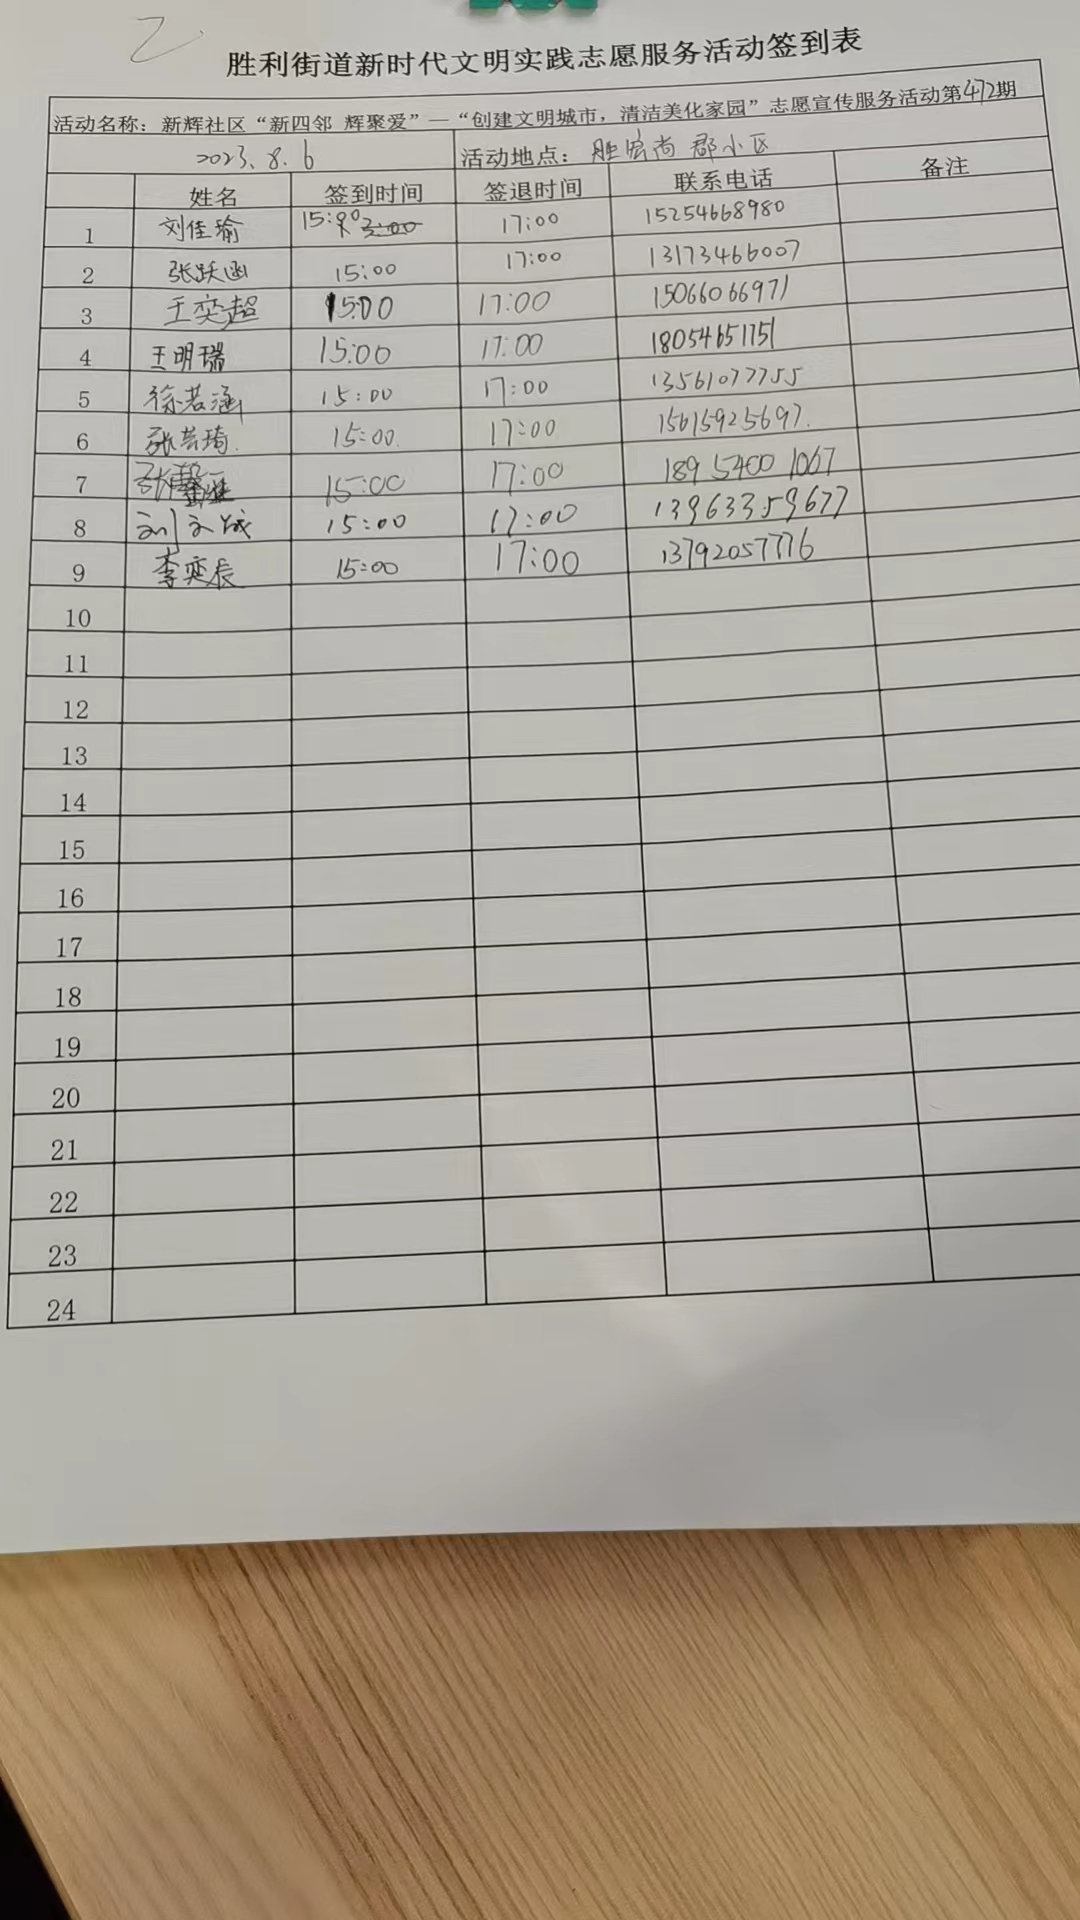 乙
胜利街道新时代文明实践志愿服务活动签到表
活动名称：新辉社区“新四邻 辉聚爱”—“创建文明城市，清洁美化家园”志愿宣传服务活动第472期
2023.8.6 活动地点：胜宏尚郡小区
姓名 签到时间 签退时间 联系电话 备注
1 刘佳瑜 15:00 17:00 15254668980
2 张跃函 15:00 17:00 13173466007
3 王奕超 15:00 17:00 15066066971
4 王明瑞 15:00 17:00 18054651751
5 徐若涵 15:00 17:00 13561077755
6 张芸琦. 15:00. 17:00 15615925697.
7 张 15:00 17:00 18954001067
8 刘文 15:00 17:00 13963359677
9 李奕辰 15:00 17:00 13792057776
10
11
12
13
14
15
16
17
18
19
20
21
22
23
24